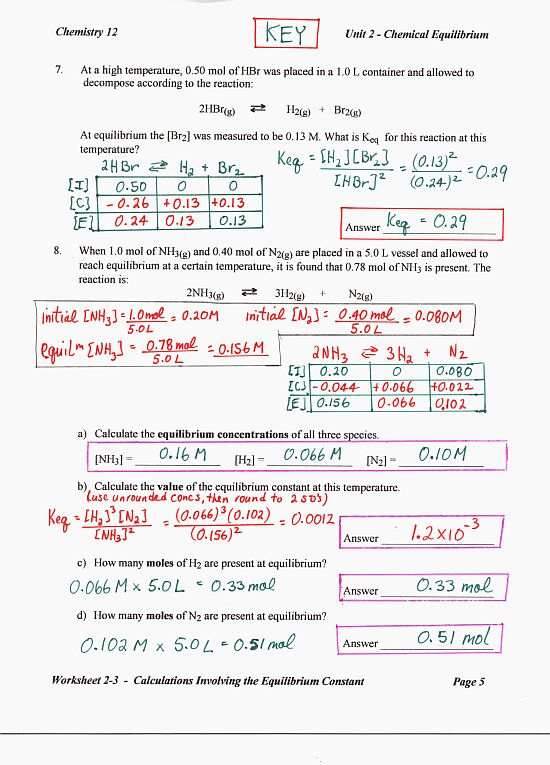 Chemistry 12 KEY Unit 2 - Chemical Equilibrium
7. At a high temperature, 0.50 mol of HBr was placed in a 1.0 L container and allowed to
decompose according to the reaction:
2HBr(g) ⇌ H2(g) + Br2(g)
At equilibrium the [Br2] was measured to be 0.13 M. What is Keq for this reaction at this
temperature?
2HBr ⇌ H2 + Br2
[I] 0.50 0 0
[C] -0.26 +0.13 +0.13
[E] 0.24 0.13 0.13
Keq = [H2][Br2] / [HBr]² = (0.13)² / (0.24)² = 0.29
Answer Keq = 0.29
8. When 1.0 mol of NH3(g) and 0.40 mol of N2(g) are placed in a 5.0 L vessel and allowed to
reach equilibrium at a certain temperature, it is found that 0.78 mol of NH3 is present. The
reaction is:
2NH3(g) ⇌ 3H2(g) + N2(g)
initial [NH3] = 1.0 mol / 5.0 L = 0.20M initial [N2] = 0.40 mol / 5.0 L = 0.080M
equil<sup>m</sup> [NH3] = 0.78 mol / 5.0 L = 0.156 M
2NH3 ⇌ 3H2 + N2
[I] 0.20 0 0.080
[C] -0.044 +0.066 +0.022
[E] 0.156 0.066 0.102
a) Calculate the equilibrium concentrations of all three species.
[NH3] = 0.16 M [H2] = 0.066 M [N2] = 0.10 M
b) Calculate the value of the equilibrium constant at this temperature.
(use unrounded concs, then round to 2 SD's)
Keq = [H2]³[N2] / [NH3]² = (0.066)³(0.102) / (0.156)² = 0.0012
Answer 1.2 x 10⁻³
c) How many moles of H2 are present at equilibrium?
0.066 M x 5.0 L = 0.33 mol
Answer 0.33 mol
d) How many moles of N2 are present at equilibrium?
0.102 M x 5.0 L = 0.51 mol
Answer 0.51 mol
Worksheet 2-3 - Calculations Involving the Equilibrium Constant Page 5